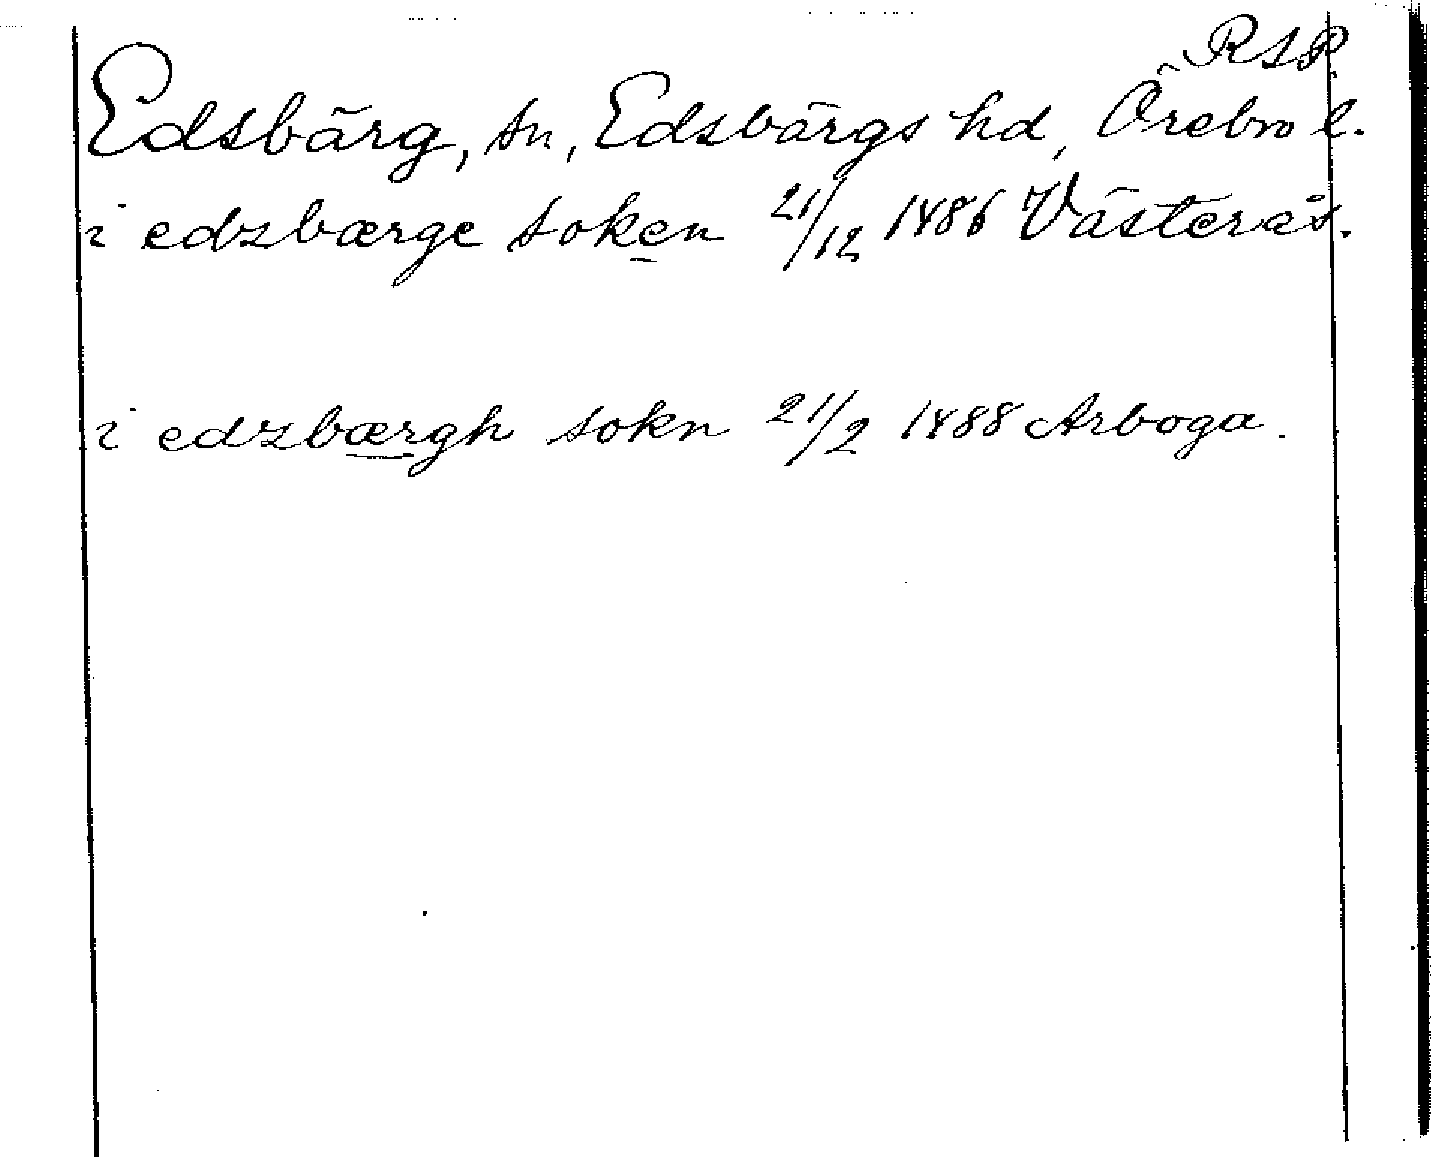 RAP.
Edsbärg, sn, Edsbärgs hd, Örebro l.
i edzbærge soken 21/12 1486 Västerås.
i edzbærgh sokn 21/2 1488 Arboga.